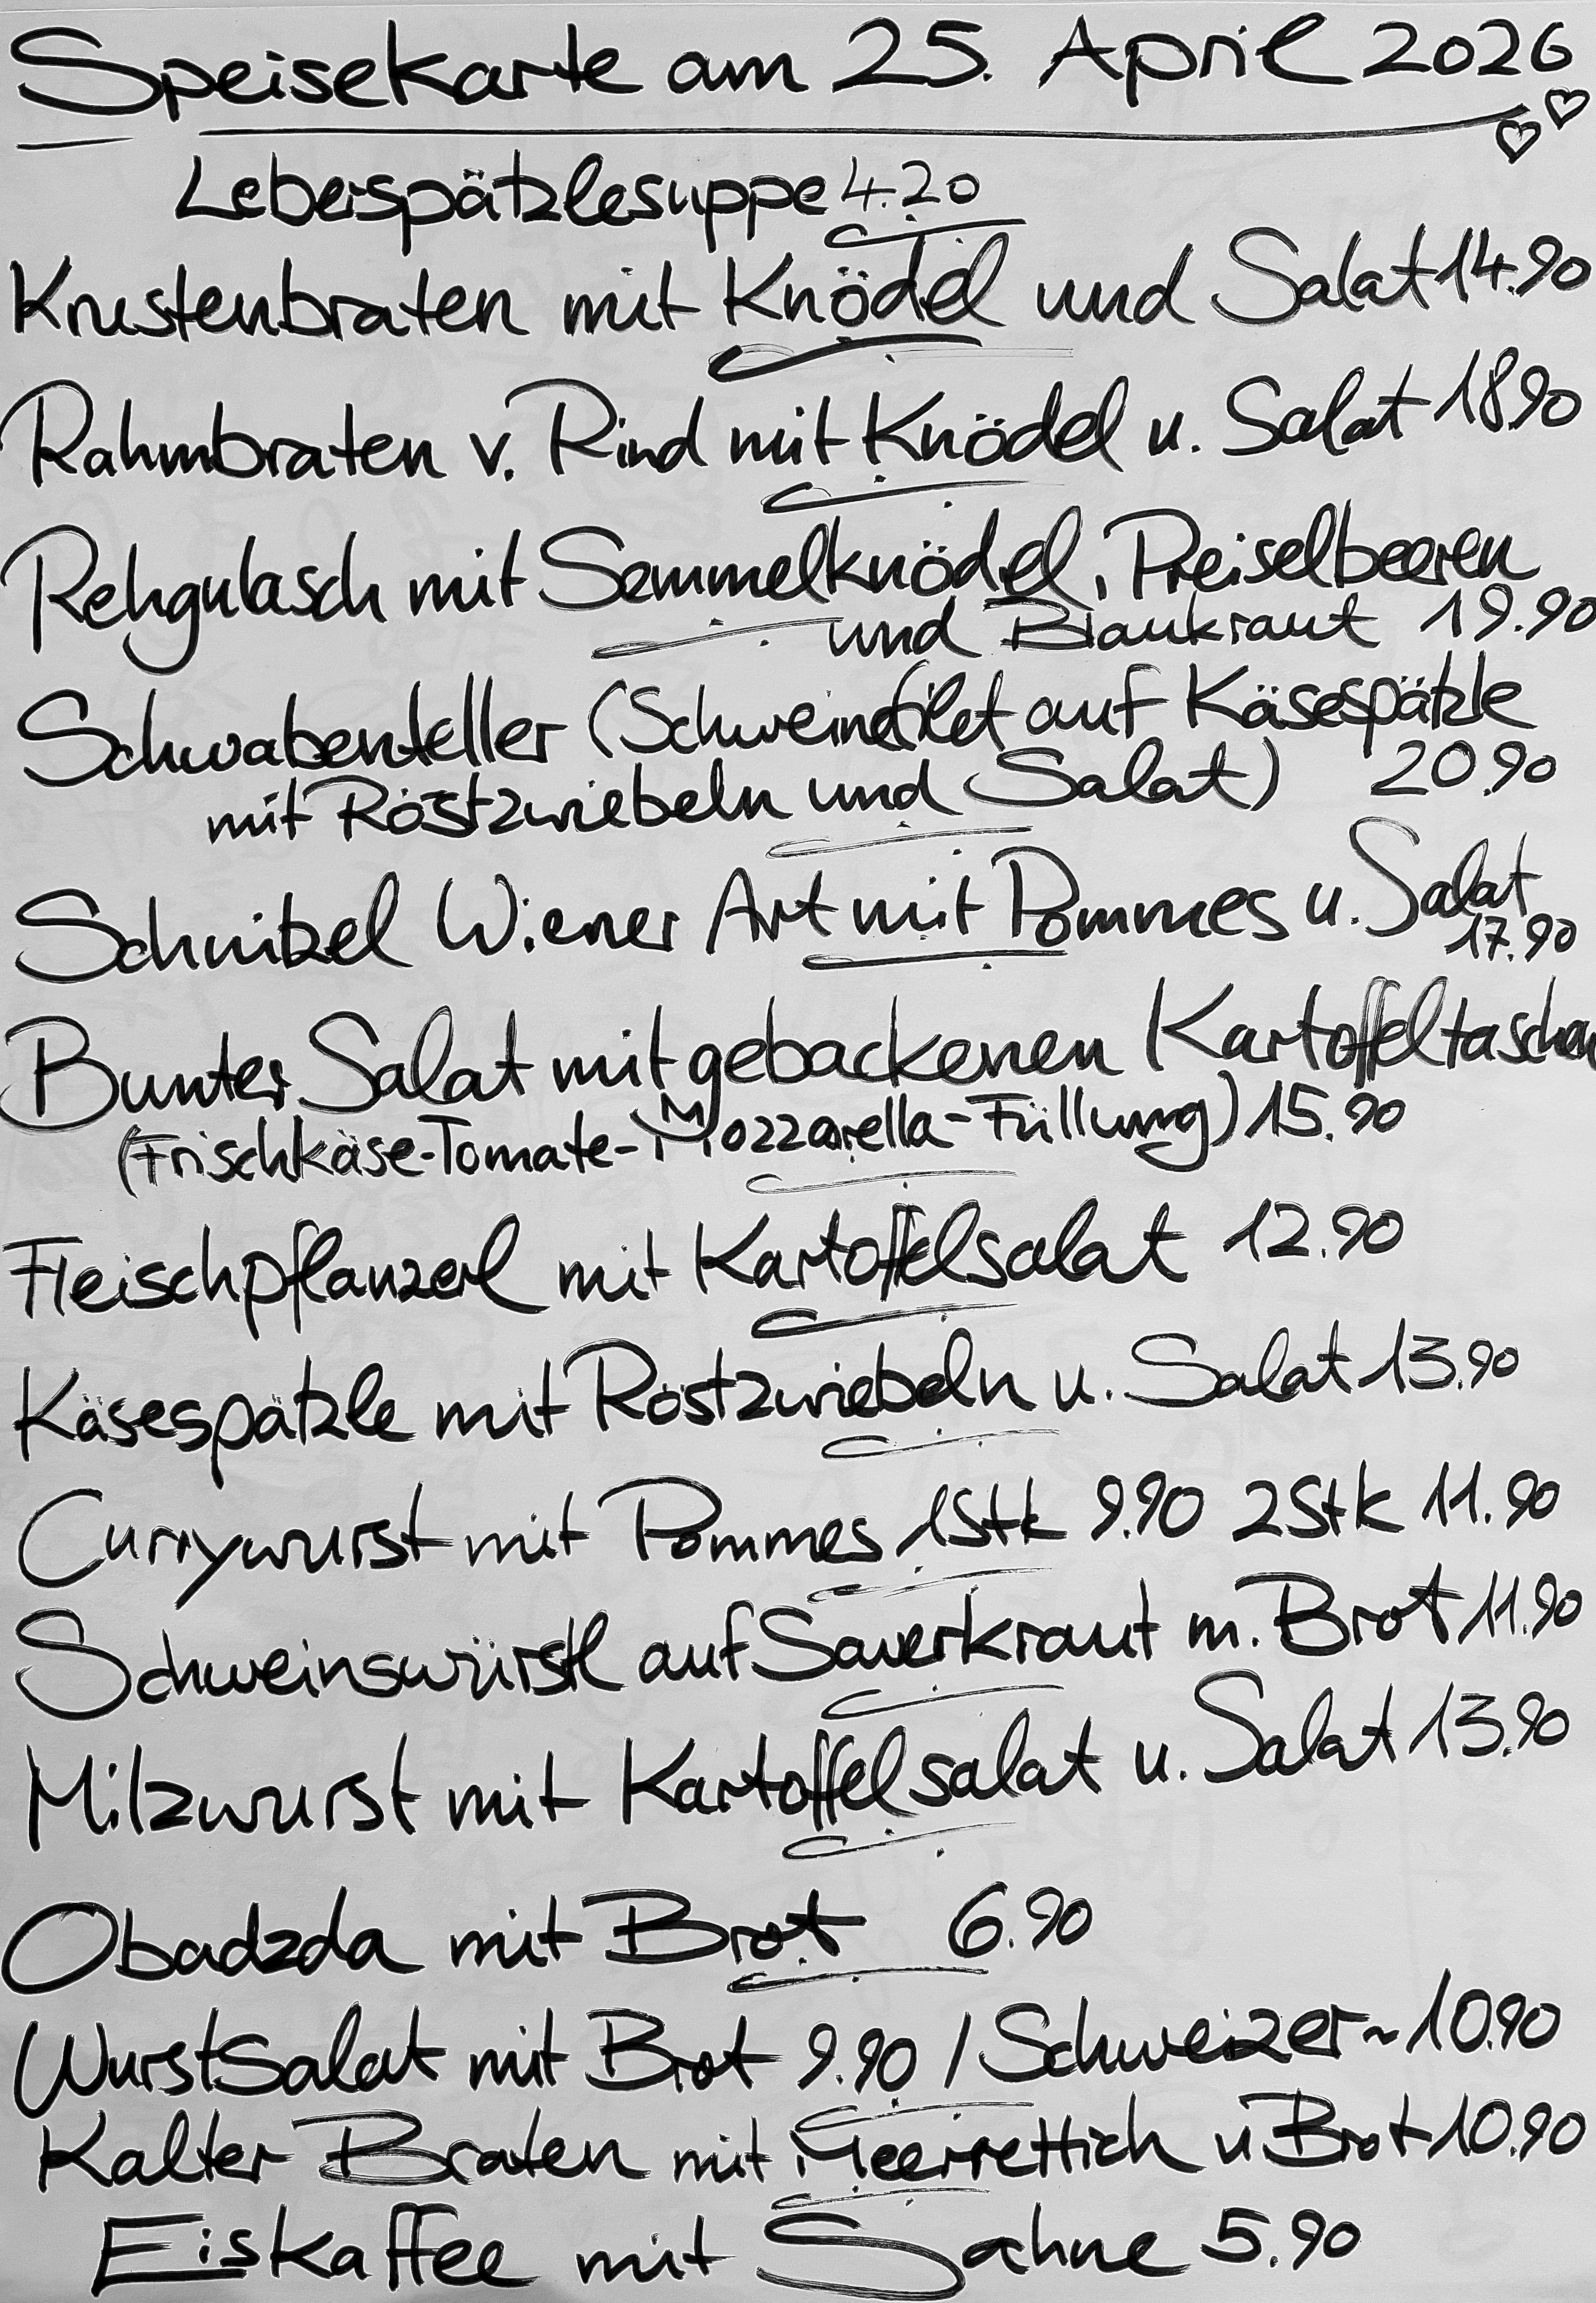 Speisekarte am 25. April 2026
Leberspätzlesuppe 4.20
Krustenbraten mit Knödel und Salat 14.90
Rahmbraten v. Rind mit Knödel u. Salat 18.90
Rehgulasch mit Semmelknödel, Preiselbeeren
und Blaukraut 19.90
Schwabenteller (Schweinefilet auf Käsespätzle
mit Röstzwiebeln und Salat) 20.90
Schnitzel Wiener Art mit Pommes u. Salat
17.90
Bunter Salat mit gebackenen Kartoffeltaschen
(Frischkäse-Tomate-Mozzarella-Füllung) 15.90
Fleischpflanzerl mit Kartoffelsalat 12.90
Käsespätzle mit Röstzwiebeln u. Salat 13.90
Currywurst mit Pommes 1Stk 9.90 2Stk 11.90
Schweinswürstl auf Sauerkraut m. Brot 11.90
Milzwurst mit Kartoffelsalat u. Salat 13.90
Obadzda mit Brot 6.90
Wurstsalat mit Brot 9.90 / Schweizer ~ 10.90
Kalter Braten mit Meerrettich u Brot 10.90
Eiskaffee mit Sahne 5.90